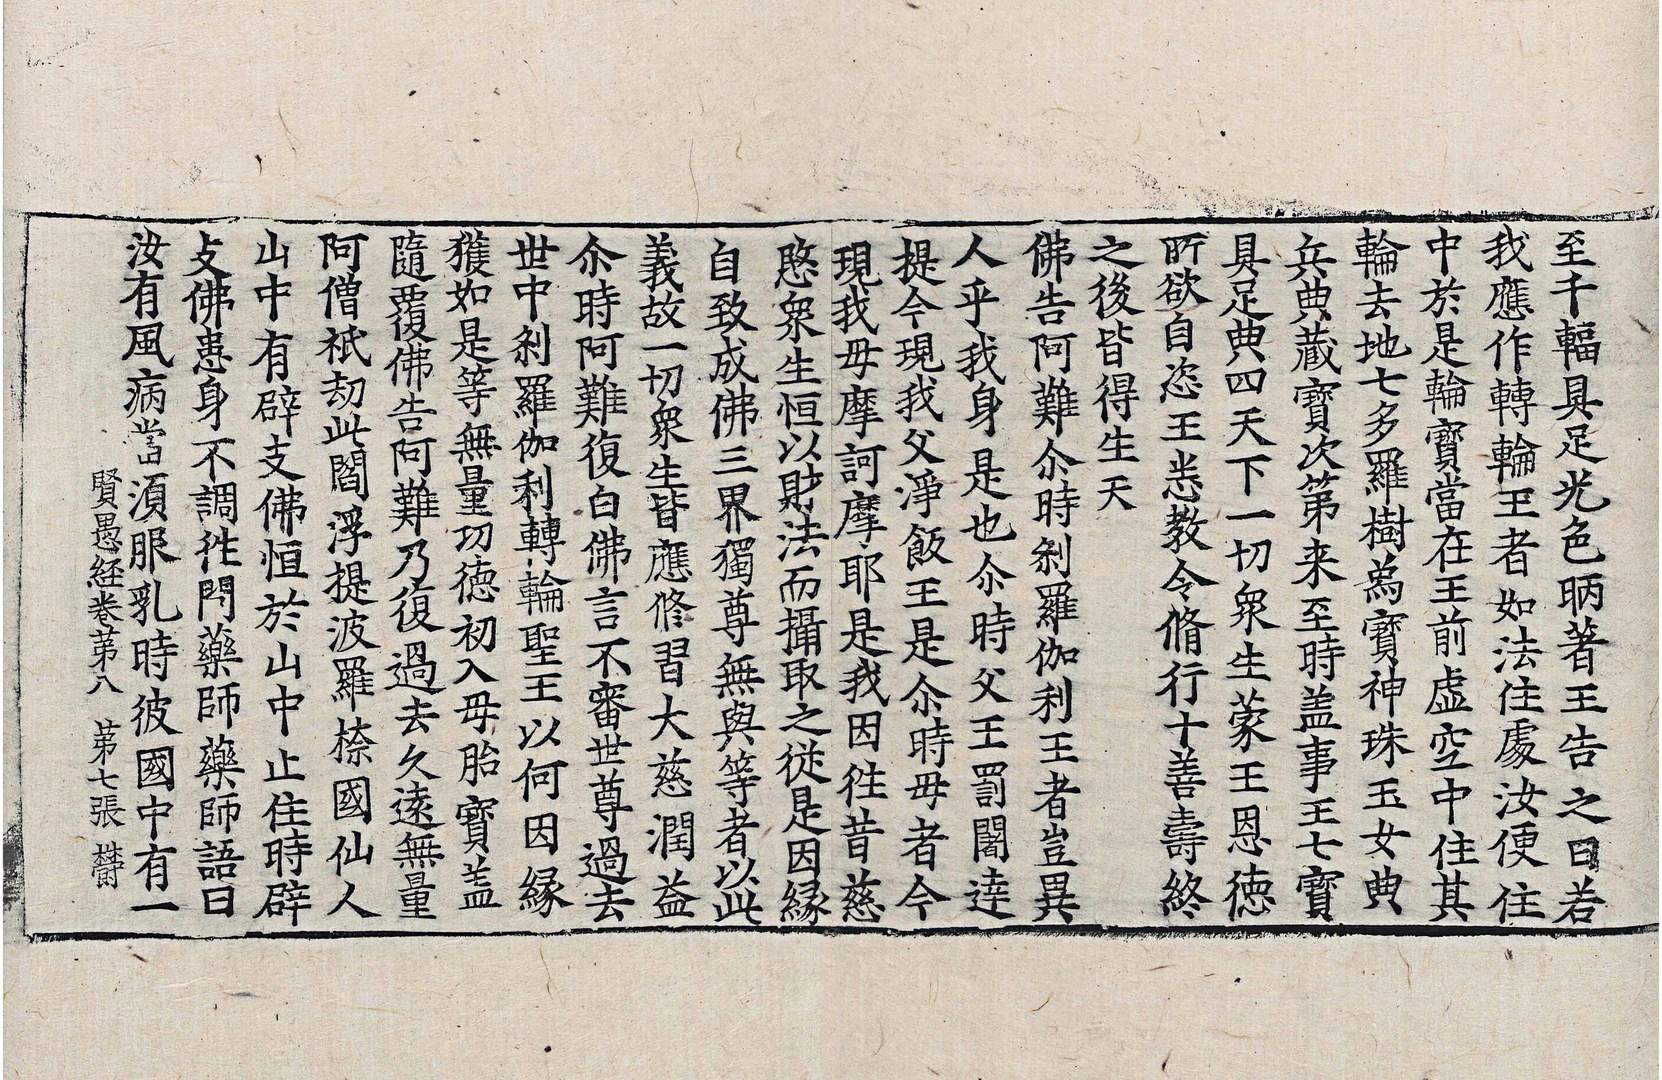 至千輻具足光色昞著王告之曰若
我應作轉輪王者如法住處汝便住
中於是輪寶當在王前虛空中住其
輪去地七多羅樹爲寶神珠玉女典
兵典藏寶次第来至時盖事王七寶
具足典四天下一切衆生蒙王恩德
所欲自恣王悉教令脩行十善壽終
之後皆得生天
佛告阿難尒時刹羅伽利王者豈異
人乎我身是也尒時父王罰闍達
提今現我父淨飯王是尒時母者今
現我母摩訶摩耶是我因徃昔慈
愍衆生恒以財法而攝取之從是因緣
自致成佛三界獨尊無與等者以此
義故一切衆生皆應修習大慈潤益
尒時阿難復白佛言不審世尊過去
世中刹羅伽利轉輪聖王以何因緣
獲如是等無量功德初入母胎寶盖
隨覆佛告阿難乃復過去久遠無量
阿僧祇劫此閻浮提波羅㮈國仙人
山中有辟支佛恒於山中止住時辟
支佛患身不調徃問藥師藥師語曰
汝有風病當湏服乳時彼國中有一
賢愚経卷第八 第七張 欝